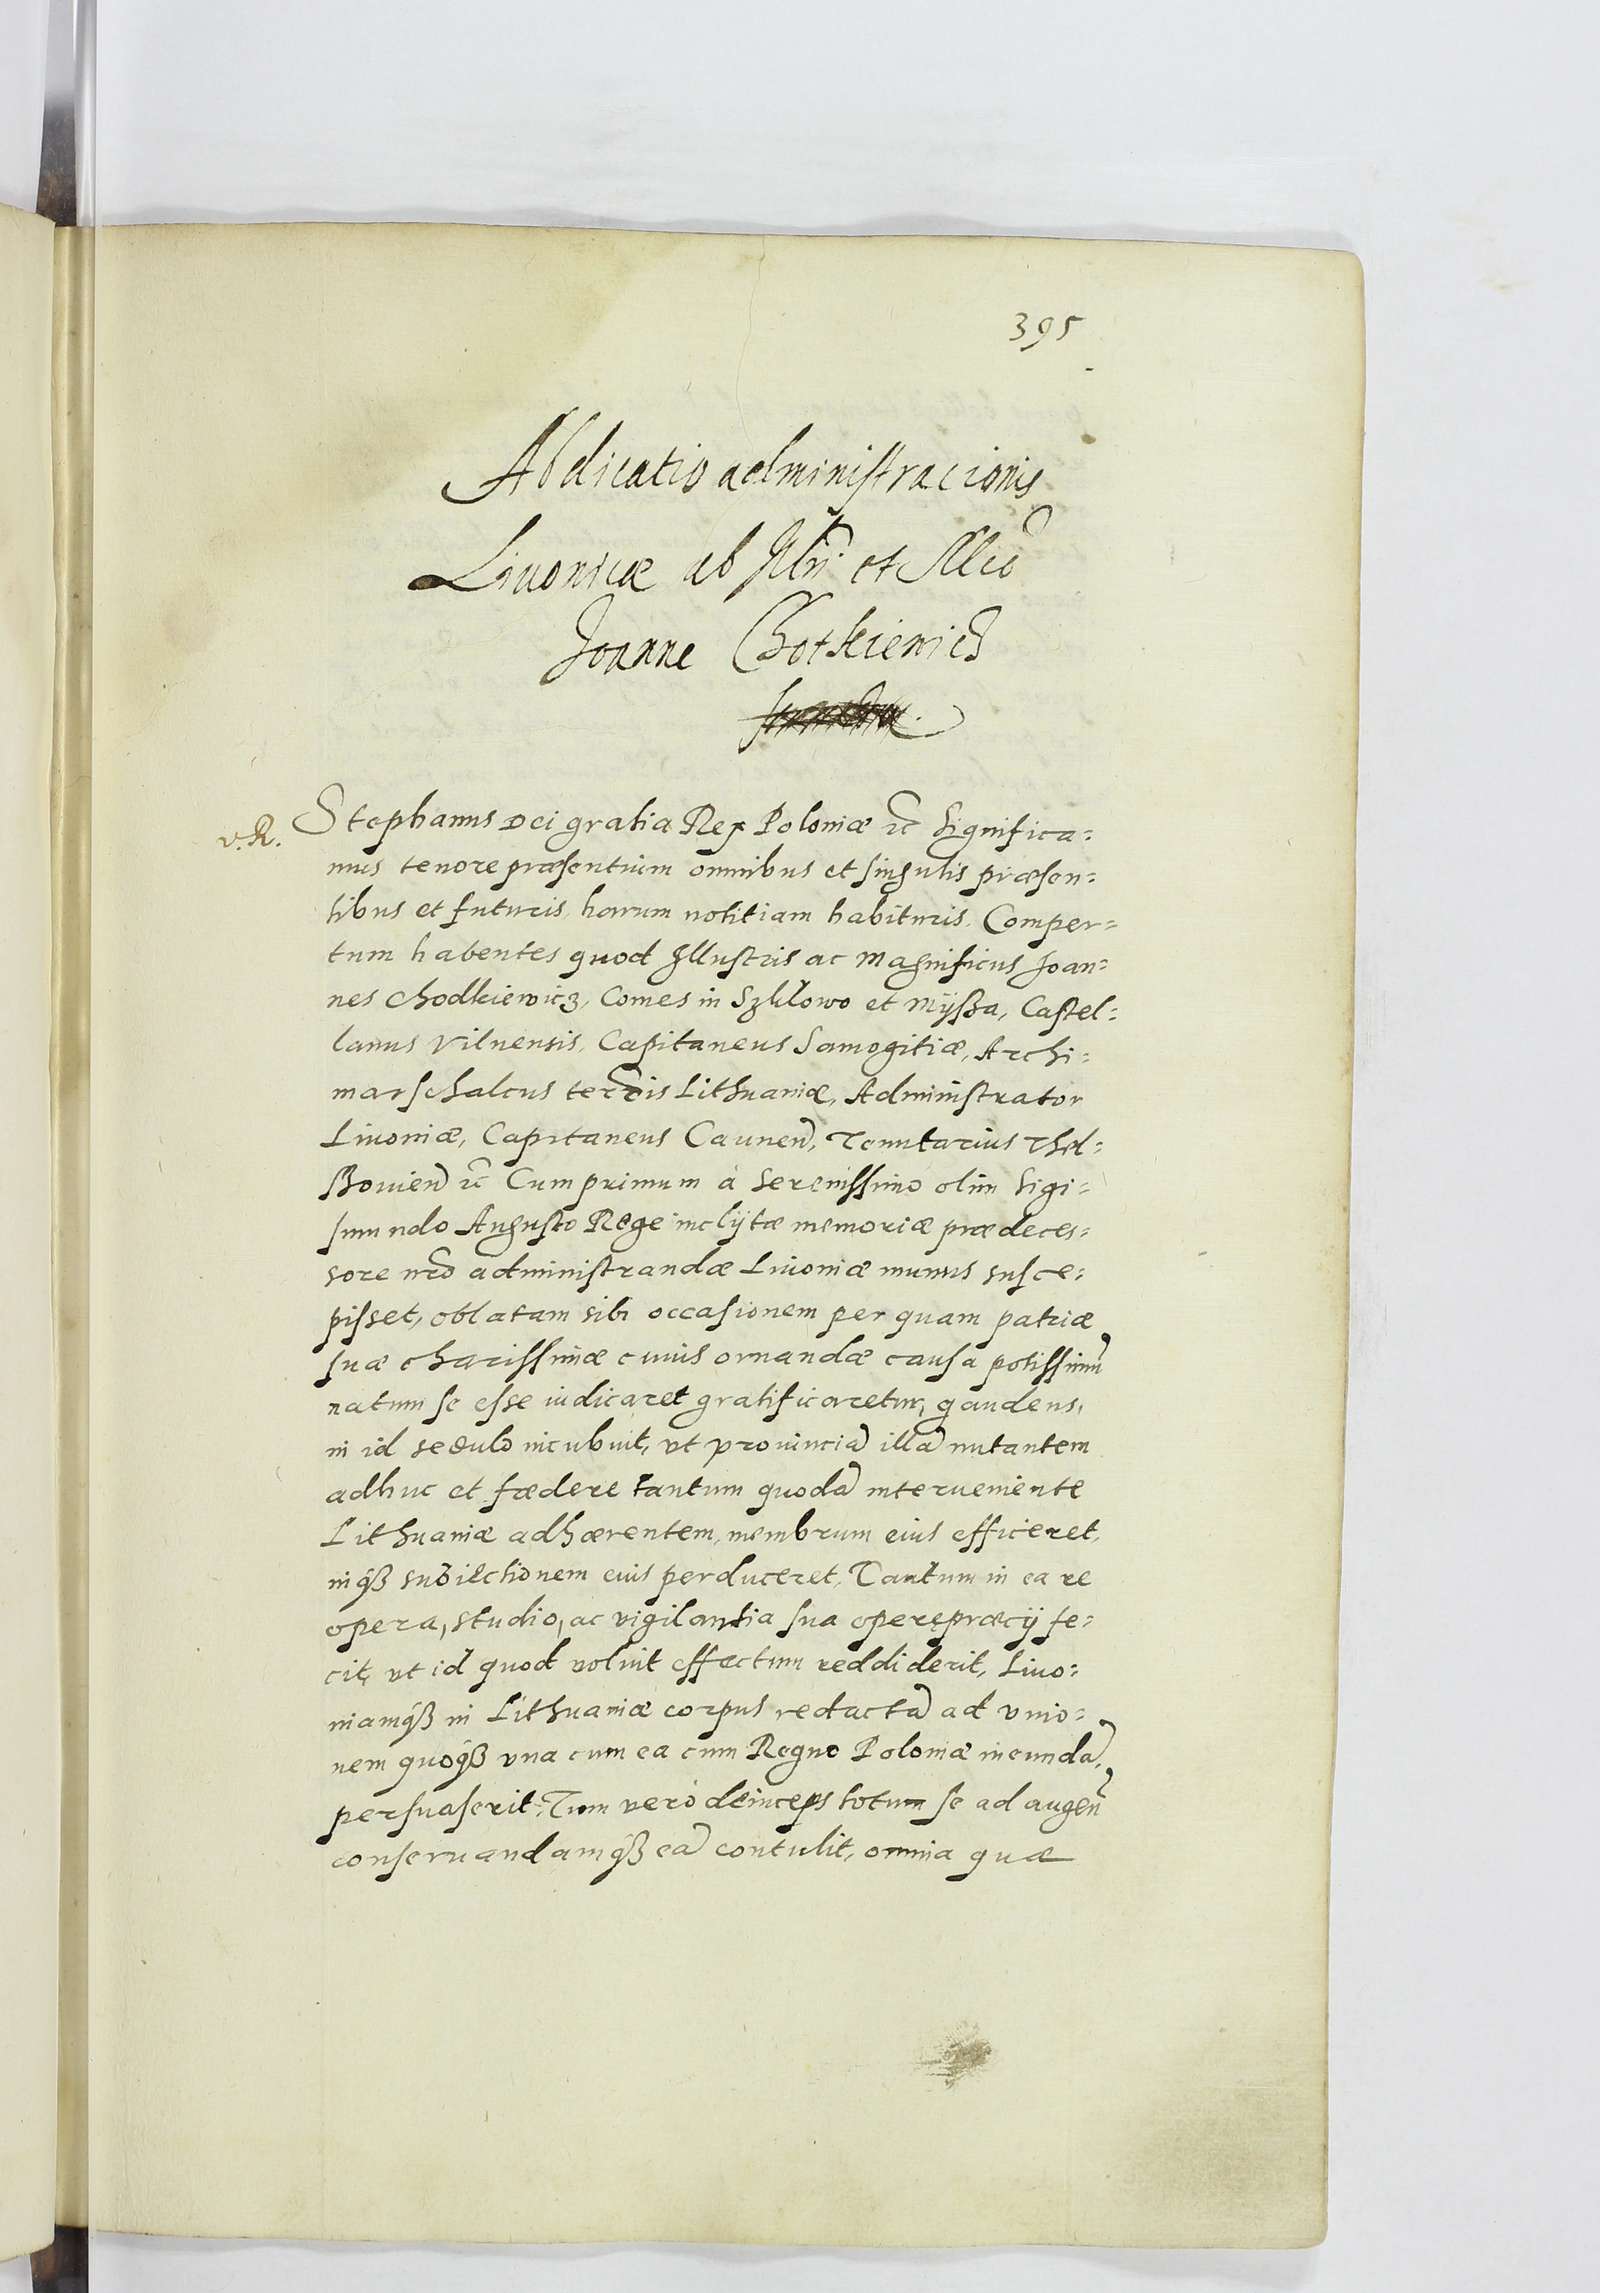 395
Abdicatio administracionis
Livonicæ ab Illri et Mco
Joanne Chotkiewicz
v. R. Stephanus Dei gratia Rex Poloniæ etc Significa=
mus tenore præsentium omnibus et singulis præsen=
tibus et futuris, harum notitiam habituris. Comper=
tum habentes quod Illustris ac Magnificus Joan=
nes Chodkiewicz, Comes in Szklowo et Mÿssa, Castel=
lanus Vilnensis, Capitaneus Samogitiæ, Archi=
marschalcus terris Lithuaniæ, Administrator
Liuoniæ, Capitaneus Caunen, Tenutarius Thel=
ssouien etc Cum primum à Serenissimo olim Sigi=
smundo Augusto Rege inclÿtæ memoriæ prædeces=
sore nro administrandæ Liuoniæ munus susce=
pisset, oblatam sibi occasionem per quam patriæ
suæ charissimæ cuius ornandæ causa potissimũ
natum se esse iudicaret gratificaretur, gaudens,
in id sedulo incubuit, vt prouinciã illã nutantem
adhuc et fædere tantum quodã interueniente
Lithuaniæ adhærentem, membrum eius efficeret,
inqß subiectionem eius perduceret. Tantum in ea re
opera, studio, ac vigilantia sua operæpræcij fe=
cit, vt id quod voluit effectum reddiderit, Liuo=
niamqß in Lithuaniæ corpus redactã ad vnio=
nem quoqß vna cum ea cum Regno Poloniæ ineundã,
persuaserit. Tum verò deinceps totum se ad augen
conseruandamqß eã contulit, omnia quæ